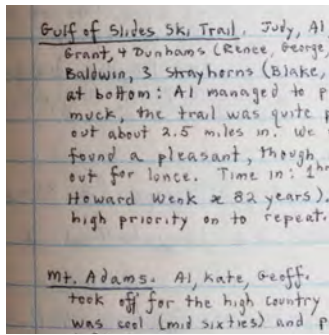 Gulf of Slides Ski Trail. Judy, Al,
Grant, 4 Dunhams (Renee, George,
Baldwin, 3 Strayhorns (Blake,
at bottom: Al managed to p
muck, the trail was quite p
out about 2.5 miles in. We
found a pleasant, though
out for lunce. Time in: 1hr
Howard Wenk x 82 years).
high priority on to repeat.
Mt. Adams. Al, Kate, Geoff.
took off for the high country
was cool (mid sixties) and p